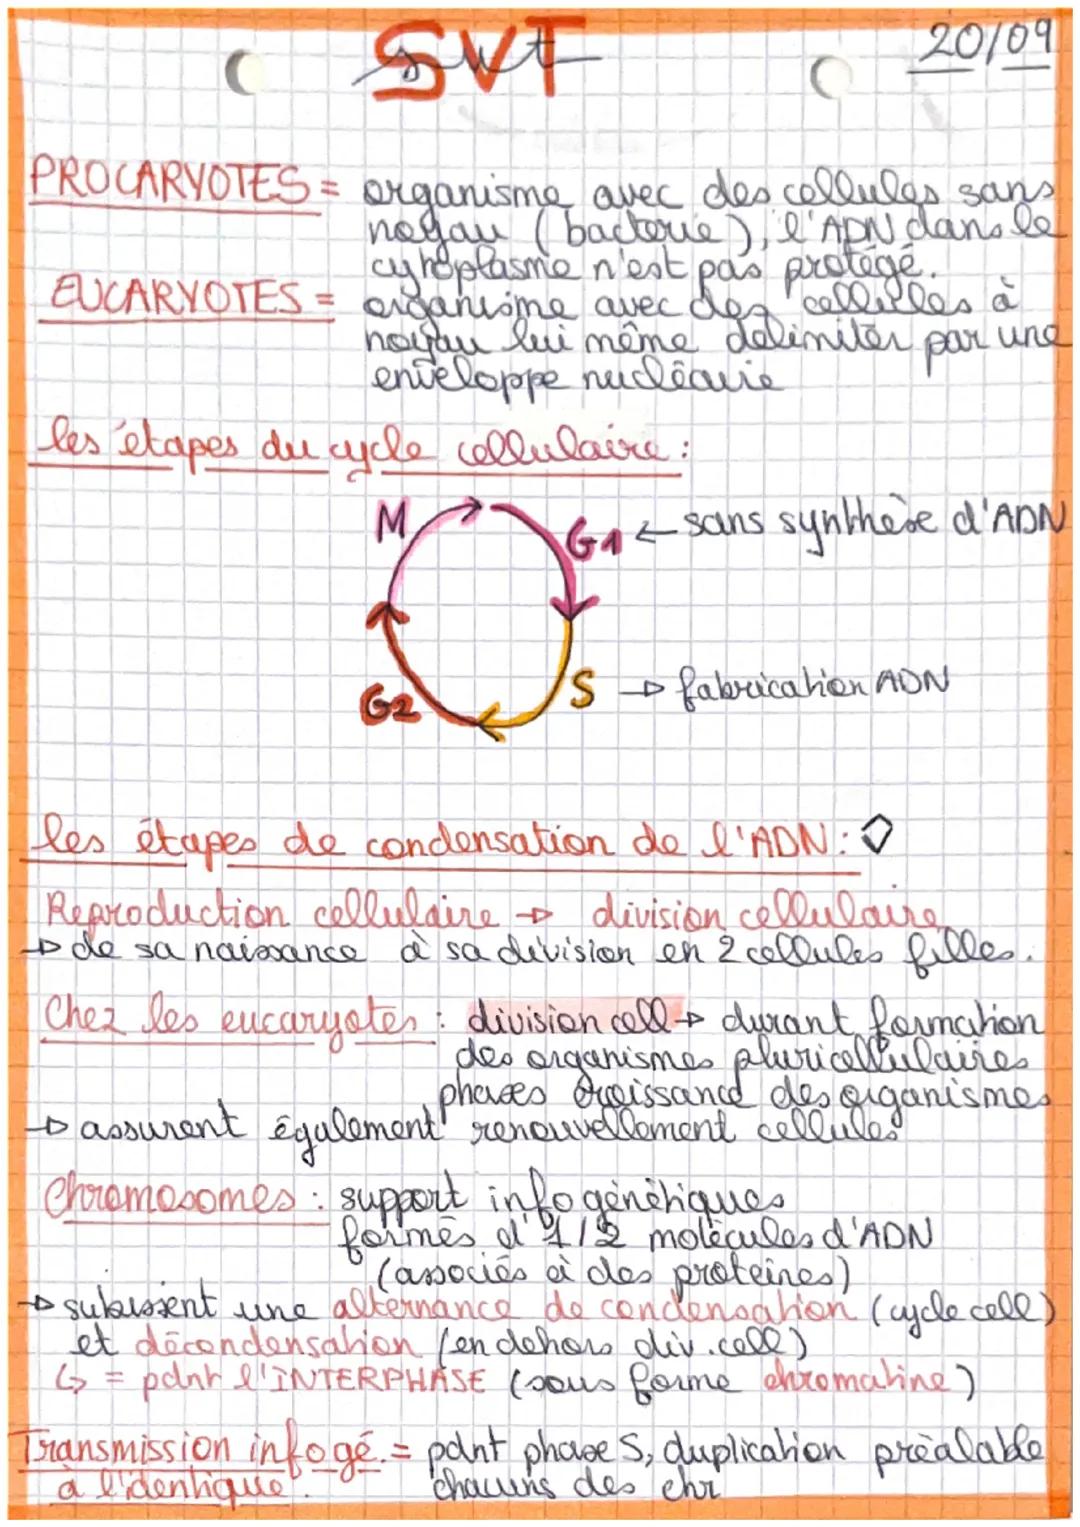 SVT
20/09
PROCARYOTES = organisme avec des cellules sans
noyau (bacterie), l'ADN dans le
cytoplasme n'est pas protégé.
EUCARYOTES = organisme avec des cellules à
noyau lui même délimiter par une
enveloppe nucléaire
les étapes du cycle cellulaire :
M
G1 ← sans synthèse d'ADN
S → fabrication ADN
G2
les étapes de condensation de l'ADN :
Reproduction cellulaire → division cellulaire
→ de sa naissance à sa division en 2 cellules filles.
Chez les eucaryotes : division cell → durant formation
des organismes pluricellulaires
phases croissance des organismes
→ assurent également renouvellement cellules
Chromosomes : support info génétiques
formés d'1/2 molécules d'ADN
(associés à des proteines)
→ subissent une alternance de condensation (cycle cell)
et décondensation (en dehors div.cell)
↳ = pdnt l'INTERPHASE (sous forme chromatine)
Transmission info gé. = pdnt phase S, duplication préalable
à l'identique. chacuns des chr